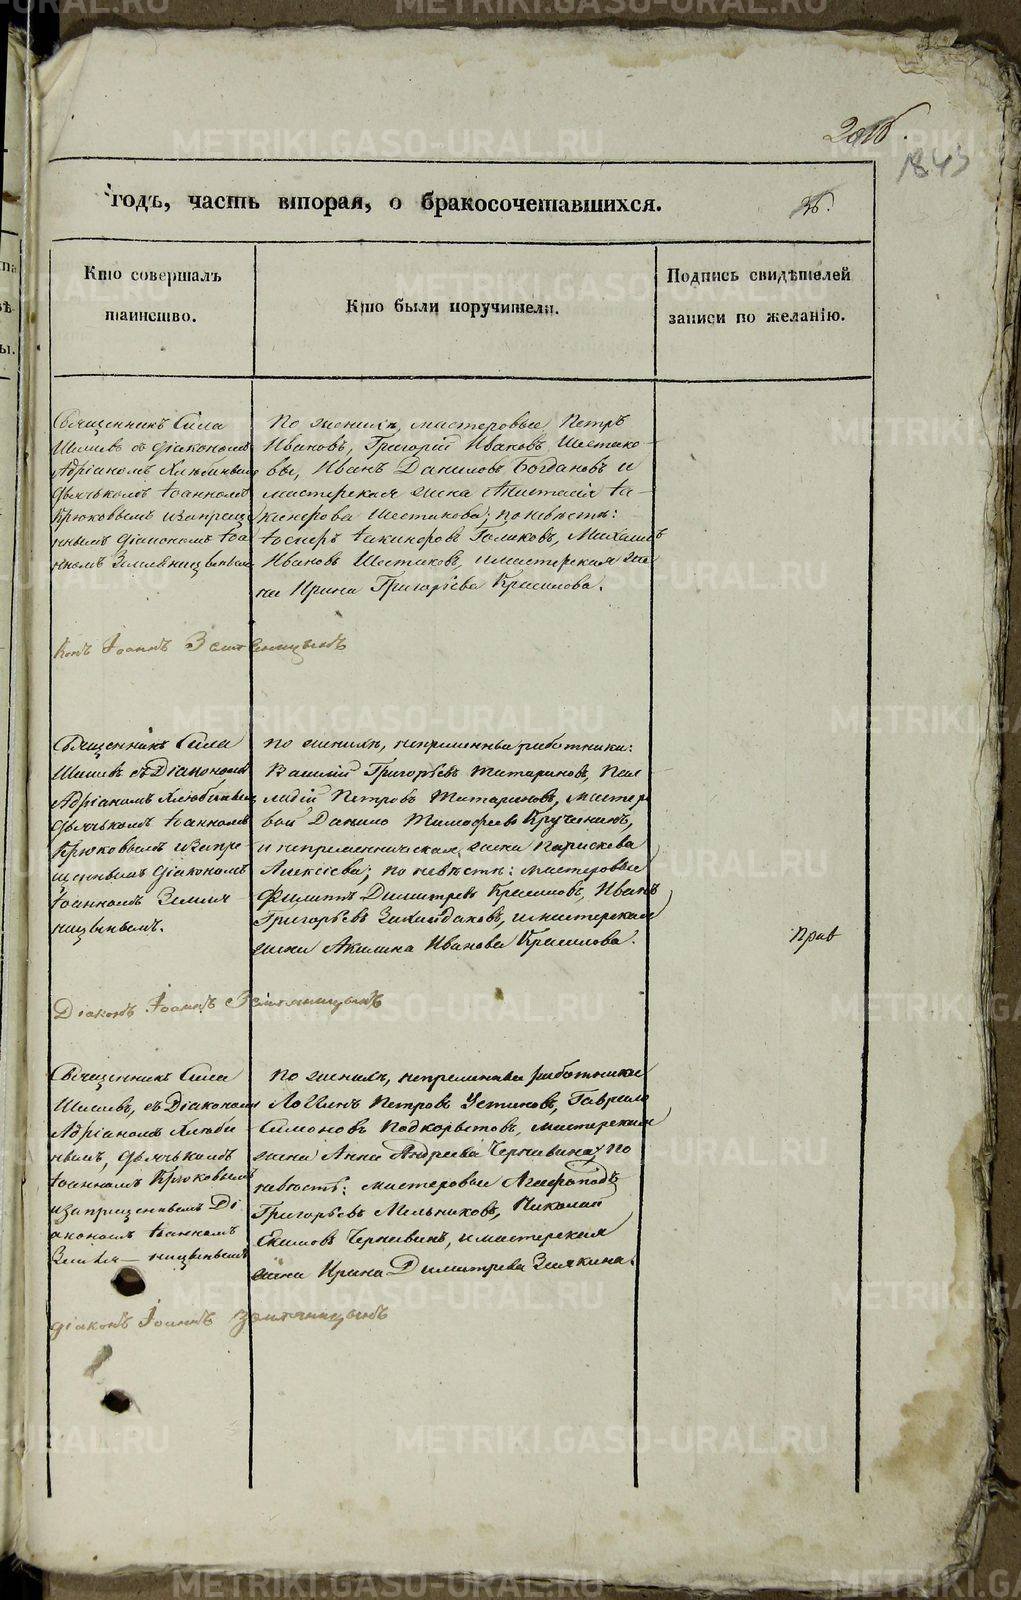 1843
годъ, часть вторая, о бракосочетавшихся.
Кто совершалъ
таинство.
Кто были поручители.
Подпись свидѣтелей
записи по желанію.
Священникъ Сила
Шишевъ съ Діакономъ
Адріаномъ Хлюбинымъ
Дьячькомъ Іоанномъ
Крюковымъ и запрещен
ннымъ Діакономъ Іоа
нномъ Земляницынымъ
По женихѣ, мастеровые Петръ
Ивановъ, Григорій Ивановъ Шестако-
вы, Иванъ Даниловъ Богдановъ и
мастерская жена Анастасія Іа-
кинфрова Шестакова; по невѣстѣ:
Іосифъ Іакинфовъ Голиковъ, Михаилъ
Ивановъ Шестаковъ, и мастерская же
на Ирина Григорьева Красилова.
Іоаннъ Земляницынъ
Священникъ Сила
Шишевъ съ Діакономъ
Адріаномъ Хлюбинымъ
Дьячькомъ Іоанномъ
Крюковымъ и запре
щеннымъ Діакономъ
Іоанномъ Земля-
ницынымъ.
По женихѣ, непременные работники:
Василій Григорьевъ Татариновъ, Пал
ладій Петровъ Татариновъ, мастеро
вой Данило Тимофеевъ Кручининъ,
и непременническая жена Параскева
Алексіева; по невѣстѣ: мастеровые
Филиппъ Димитревъ Красиловъ, Иванъ
Григорьевъ и мастерская
жена Акилина Иванова Красилова.
Прав
Діаконъ Іоаннъ Земляницынъ
Священникъ Сила
Шишевъ, съ Діакономъ
Адріаномъ Хлюби
нымъ, Дьячькомъ
Іоанномъ Крюковымъ
и запрещеннымъ Ді
акономъ Іоанномъ
Земля-ницынымъ
По женихѣ, непременные работники
Логинъ Петровъ Устиновъ, Гаврило
Симоновъ Подкорытовъ, мастерская
жена Анна Андреева Чернавина; по
невѣстѣ: мастеровые Агафоподъ
Григорьевъ Мельниковъ, Николай
Екимовъ Чернавинъ, и мастерская
жена Ирина Димитрева Заякина.
діаконъ Іоаннъ Земляницынъ
METRIKI.GASO-URAL.RU